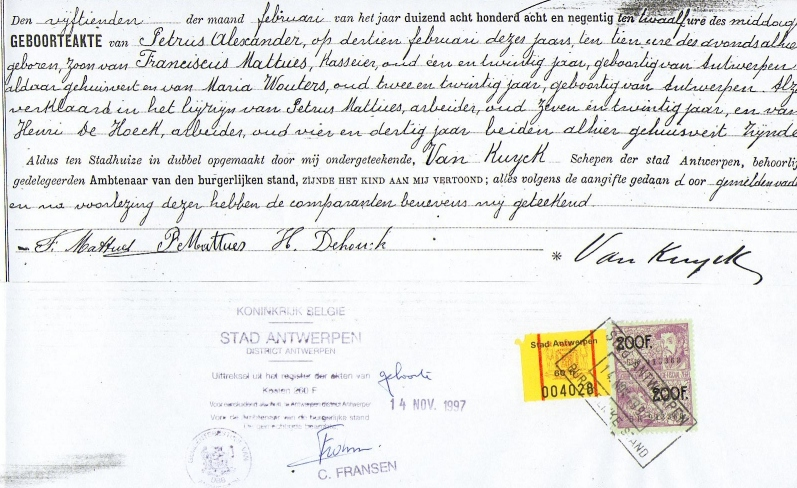 Den vijftienden der maand februari van het jaar duizend acht honderd acht en negentig ten twaalf ure des middags,
GEBOORTEAKTE van Petrus Alexander, op dertien februari dezes jaars, ten tien ure des avonds alhier
geboren, zoon van Franciscus Mattues, Kasseier, oud een en twintig jaar, geboortig van Antwerpen
aldaar gehuisvest en van Maria Wouters, oud twee en twintig jaar, geboortig van Antwerpen. Alzo
verklaard in het bijzijn van Petrus Mattues, arbeider, oud zeven en twintig jaar, en van
Henri De Hoeck, arbeider, oud vier en dertig jaar beiden alhier gehuisvest zijnde
Aldus ten Stadhuize in dubbel opgemaakt door mij ondergeteekende, Van Kuyck Schepen der stad Antwerpen, behoorlij
gedelegeerden Ambtenaar van den burgerlijken stand, ZIJNDE HET KIND AAN MIJ VERTOOND; alles volgens de aangifte gedaan door gemelden vader
en na voorlezing dezer hebben de comparanten benevens mij geteekend
F. Mattues P. Mattues H. Dehouck * Van Kuyck
KONINKRIJK BELGIE
STAD ANTWERPEN
DISTRICT ANTWERPEN
Uittreksel uit het register der akten van geboorte
Kosten 260 F
14 NOV. 1997
Voor de Ambtenaar van de burgerlijke stand
C. FRANSEN
Stad Antwerpen
60
004028
200F.
200F.